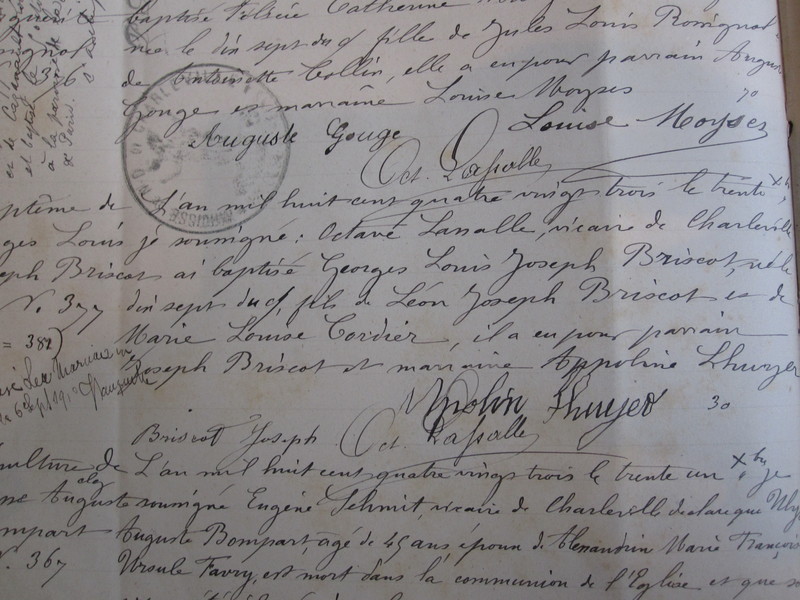 baptisé Félicie Catherine
née le dix sept du ct, fille de Jules Louis Rossignol
N. 376 de Antoinette Collin, elle a eu pour parrain Auguste
Gouge et marraine Louise Moyses
Auguste Gouge Louise Moyses
Oct. Lassalle
ptême de L'an mil huit cent quatre vingt trois le trente Xbre,
ges Louis je soussigné : Octave Lassalle, vicaire de Charleville
seph Briscot ai baptisé Georges Louis Joseph Briscot, né le
N. 377 dix sept du ct, fils de Léon Joseph Briscot et de
= 382) Marie Louise Cordier, il a eu pour parrain
Joseph Briscot et marraine Appoline Lhuyer
30
Briscot Joseph Oct. Lassalle
pulture de L'an mil huit cent quatre vingt trois le trente un Xbre je
Auguste soussigné Eugène Schmit, vicaire de Charleville declare que
mpart Auguste Bompart, agé de 45 ans époux de Alexandrin Marie François
N. 367 Ursule Favry, est mort dans la communion de l'Eglise et que